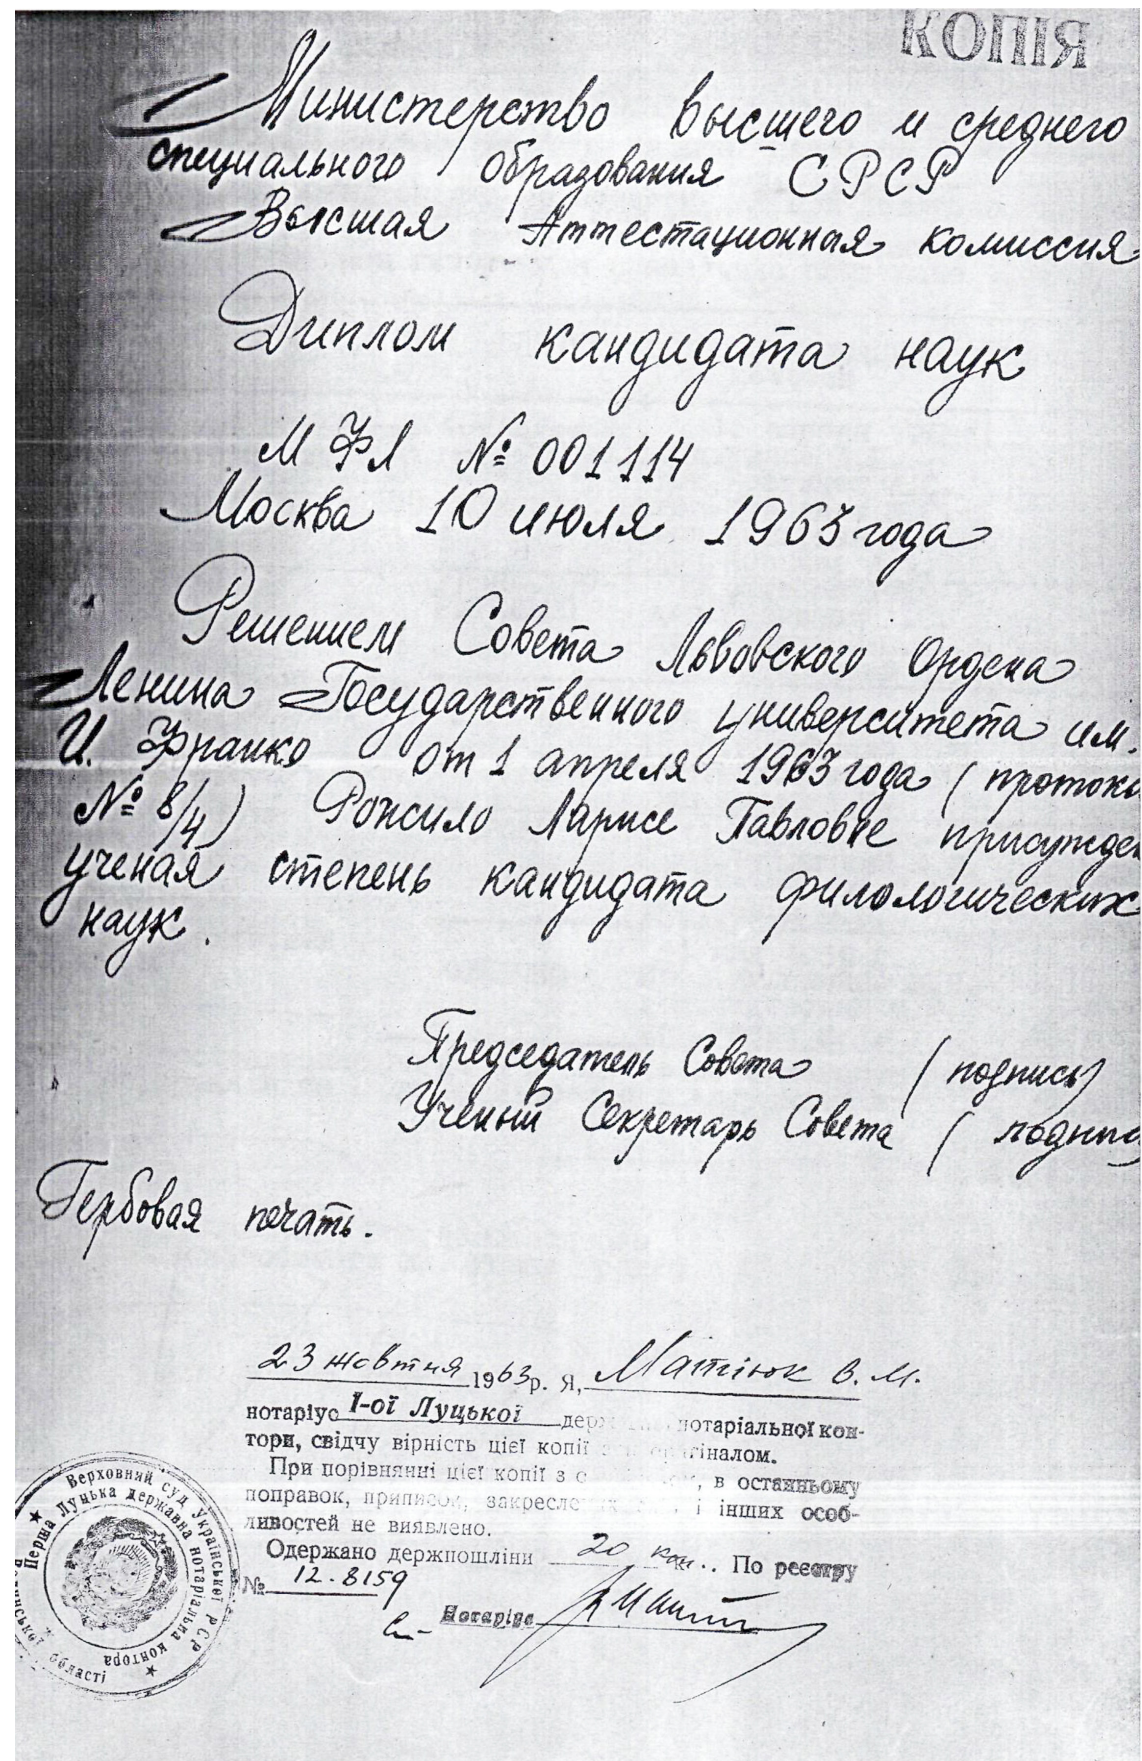 КОПІЯ
Министерство высшего и среднего
специального образования СРСР
Высшая Аттестационная комиссия
Диплом кандидата наук
МФЛ № 001114
Москва 10 июля 1963 года
Решением Совета Львовского Ордена
Ленина Государственного университета им.
И. Франко от 1 апреля 1963 года (протоко
№ 8/4) Рожило Ларисе Павловне присужден
ученая степень кандидата филологических
наук.
Председатель Совета (подпись)
Ученый Секретарь Совета (подпись
Гербовая печать.
23 жовтня 1963 р. Я, Матіюк В. М.
нотаріус І-ої Луцької держ нотаріальної кон-
тори, свідчу вірність цієї копії з оригіналом.
При порівнянні цієї копії з о , в останньому
поправок, приписок, закресле і інших особ-
ливостей не виявлено.
Одержано держпошліни 20 коп. По реєстру
№ 12-8159
Нотаріус
Верховний суд Української РСР
Перша Луцька державна нотаріальна контора
області